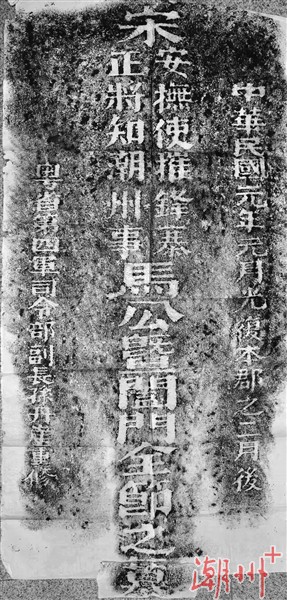 中華民國元年元月光復本郡之二月後
宋
安撫使摧鋒寨
正將知潮州事
馬公暨闔門全節之墓
粵省第四軍司令部副長孫丹崖重修
潮州+